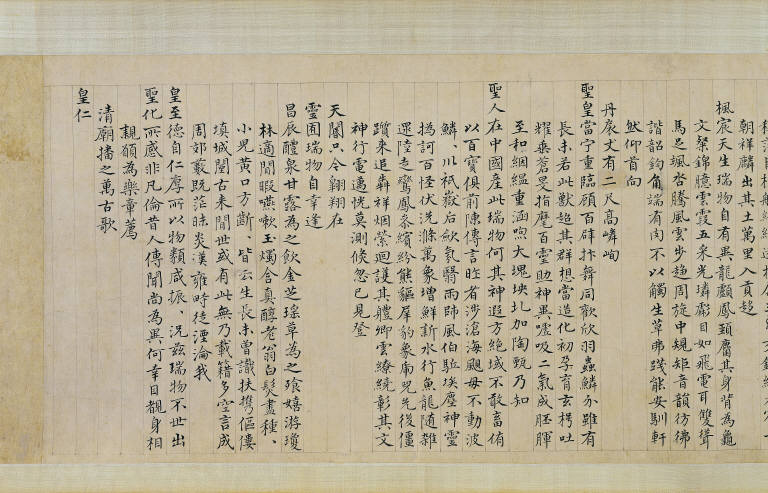 朝祥麟出其土萬里入貢趨
楓宸天生瑞物自有異龍顱鳳頸麕其身背為龜
文粲錦臆雲霞五采光璘㸌目如飛電耳雙聳
馬足颯沓騰風雲步趨周旋中規矩音韻彷彿
諧韶鈞角端有肉不以觸生草弗踐能安馴軒
然仰首向
丹扆丈有二尺高嶙峋
聖皇當宁重臨顧百辟抃舞同歡欣羽蟲鱗介雖有
長未若此獸超其群想當造化初孕育玄樗吐
耀乘蒼旻指麾百靈助神異噓吸二氣成胚腪
至和絪縕重涵喣大塊坱圠加陶甄乃知
聖人在中國產此瑞物何其神遐方絶域不敢畜侑
以百寶俱前陳傳言昨者涉滄海颶母不動波
鱗鱗川祇嶽后歛氛翳雨師風伯駈埃塵神靈
撝訶百怪伏洗滌萬象增鮮新水行魚龍隨雜
遝陸走鸞鳳參繽紛熊貙犀豹象虎兕先後僵
躓來追犇祥烟縈迴護其軆卿雲繚繞彰其文
神行電邁恍莫測倐忽已見登
天闕只今翱翔在
靈囿瑞物自幸逢
昌辰醴泉甘露為之飲金芝瑶草為之飱嬉游瓊
林適閒暇嚥嗽玉燭含真醇老翁白髮盡種種
小兒黃口方齗齗皆云生長未曾識扶携傴僂
填城闉古來聞世或有此無乃載籍多空言成
周郊藪既茫昧炎漢雍畤徒湮淪我
皇至德自仁厚所以物類咸振振況茲瑞物不世出
聖化所感非凡倫昔人傳聞尚為異何幸目覩身相
親願為樂章薦
清廟播之萬古歌
皇仁